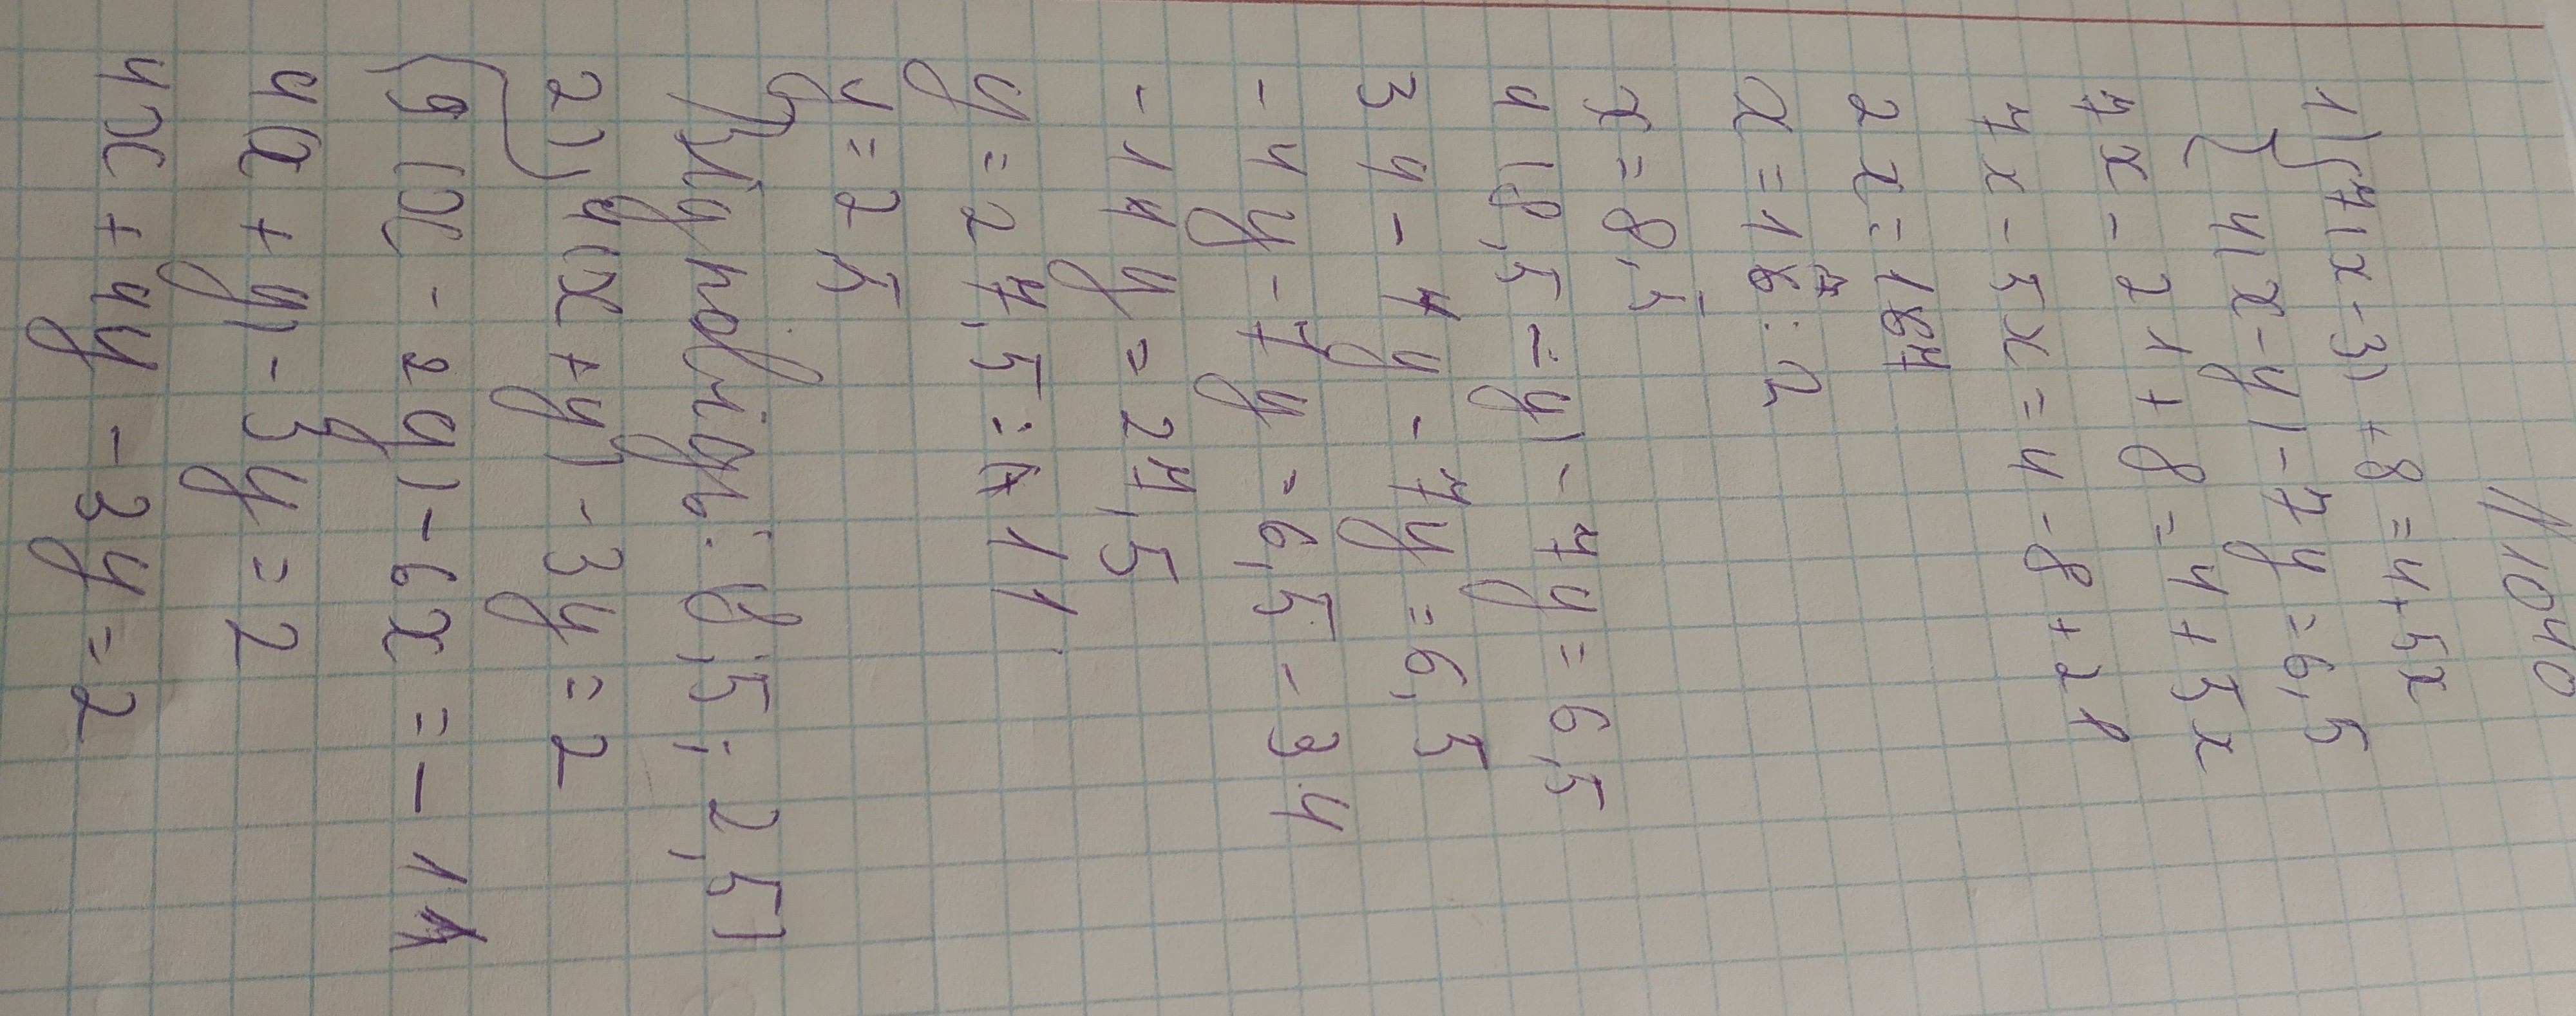 №1040
1) { 7(x-3)+8=4+5x
4(x-y)-7y=6,5
7x-21+8=4+5x
7x-5x=4-8+21
2x=17
x=17:2
x=8,5
4(8,5-y)-7y=6,5
34-4y-7y=6,5
-4y-7y=6,5-34
-11y=27,5
y=27,5:11
y=2,5
Відповідь: (8,5; 2,5)
2) { 4(x+y)-3y=2
9(x-2y)-6x=-11
4(x+y)-3y=2
4x+4y-3y=2